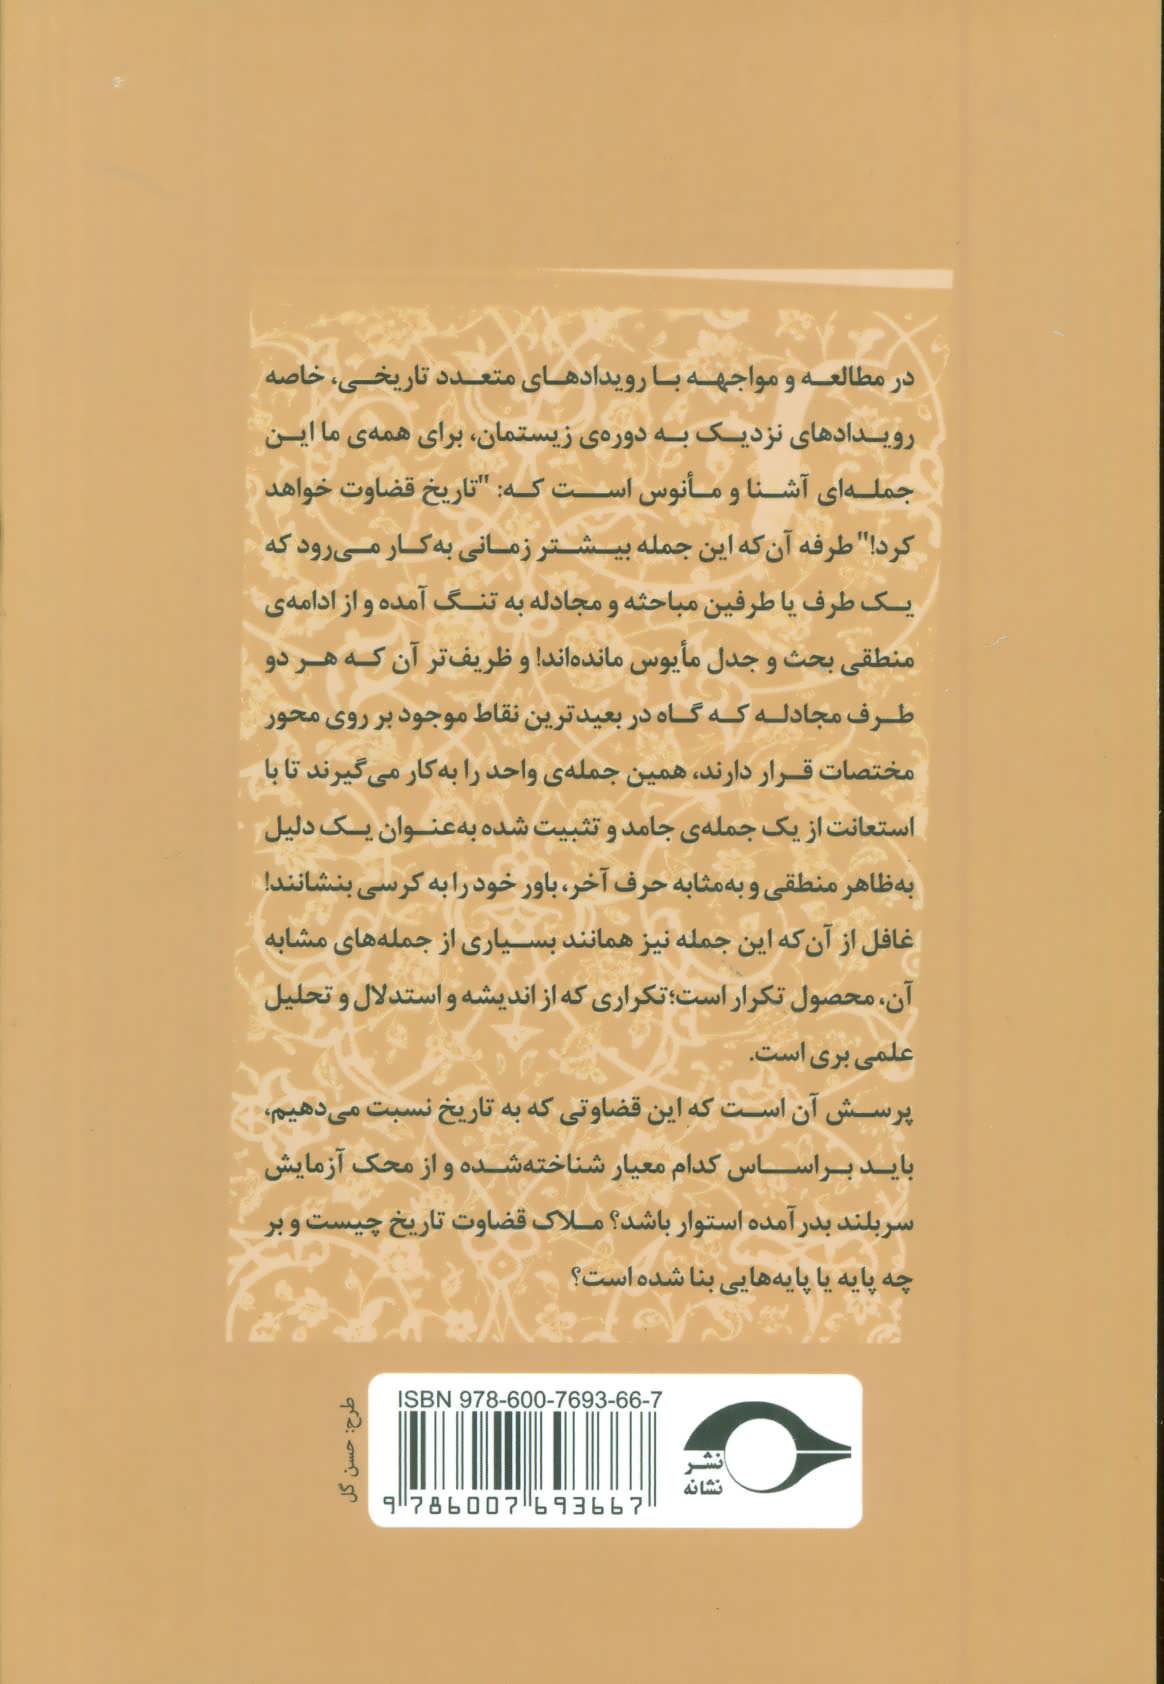 در مطالعه و مواجهه با رویدادهای متعدد تاریخی، خاصه
رویدادهای نزدیک به دوره‌ی زیستمان، برای همه‌ی ما این
جمله‌ای آشنا و مأنوس است که: "تاریخ قضاوت خواهد
کرد!" طرفه آن‌که این جمله بیشتر زمانی به‌کار می‌رود که
یک طرف یا طرفین مباحثه و مجادله به تنگ آمده و از ادامه‌ی
منطقی بحث و جدل مأیوس مانده‌اند! و ظریف‌تر آن که هر دو
طرف مجادله که گاه در بعیدترین نقاط موجود بر روی محور
مختصات قرار دارند، همین جمله‌ی واحد را به‌کار می‌گیرند تا با
استعانت از یک جمله‌ی جامد و تثبیت شده به‌عنوان یک دلیل
به‌ظاهر منطقی و به‌مثابه حرف آخر، باور خود را به کرسی بنشانند!
غافل از آن‌که این جمله نیز همانند بسیاری از جمله‌های مشابه
آن، محصول تکرار است؛ تکراری که از اندیشه و استدلال و تحلیل
علمی بری است.
پرسش آن است که این قضاوتی که به تاریخ نسبت می‌دهیم،
باید براساس کدام معیار شناخته‌شده و از محک آزمایش
سربلند بدر آمده استوار باشد؟ ملاک قضاوت تاریخ چیست و بر
چه پایه یا پایه‌هایی بنا شده است؟
طرح: حسن گل
ISBN 978-600-7693-66-7
9 786007 693667
نشر
نشانه